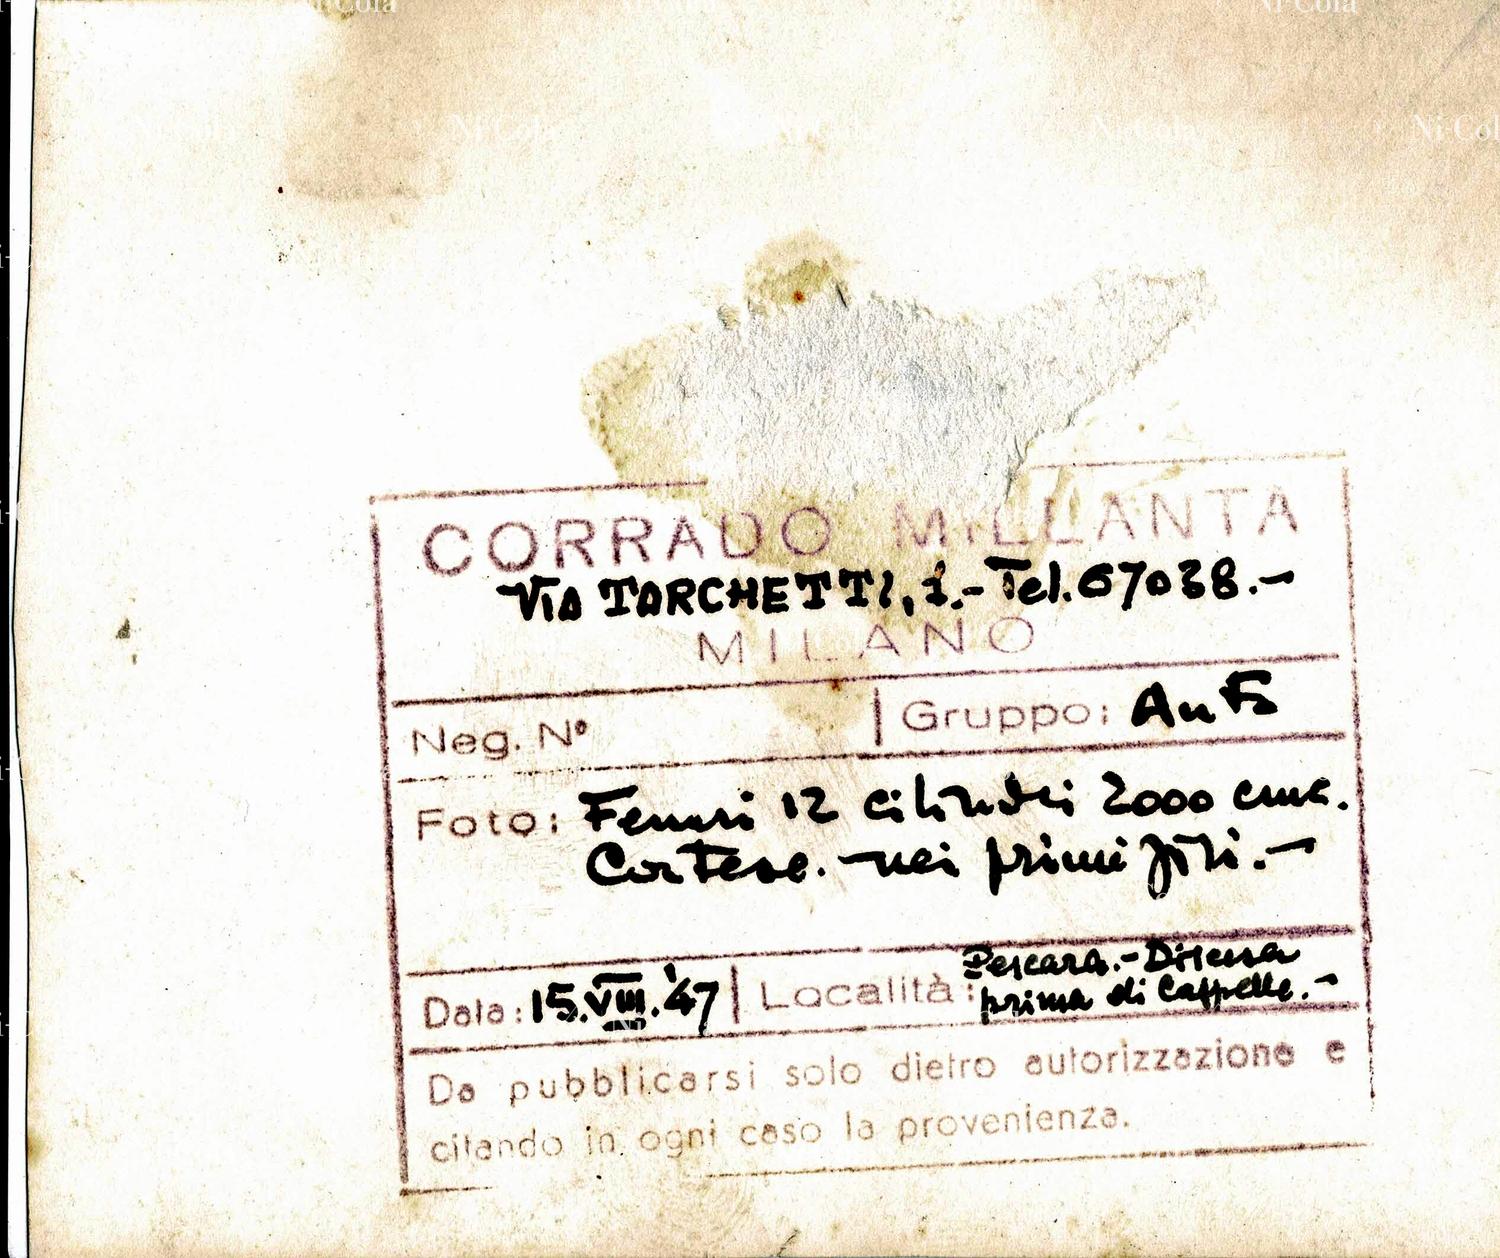 CORRADO MILLANTA
VIA TARCHETTI, 1.- Tel. 67038.-
MILANO
Neg. Nº
Gruppo: Auto
Foto: Ferrari 12 cilindri 2000 cmc.
Cortese. - nei primi giri. -
Data: 15.VIII.'47
Località: Pescara.- Discesa
prima di Cappelle. -
Da pubblicarsi solo dietro autorizzazione e
citando in ogni caso la provenienza.
Ni Cola